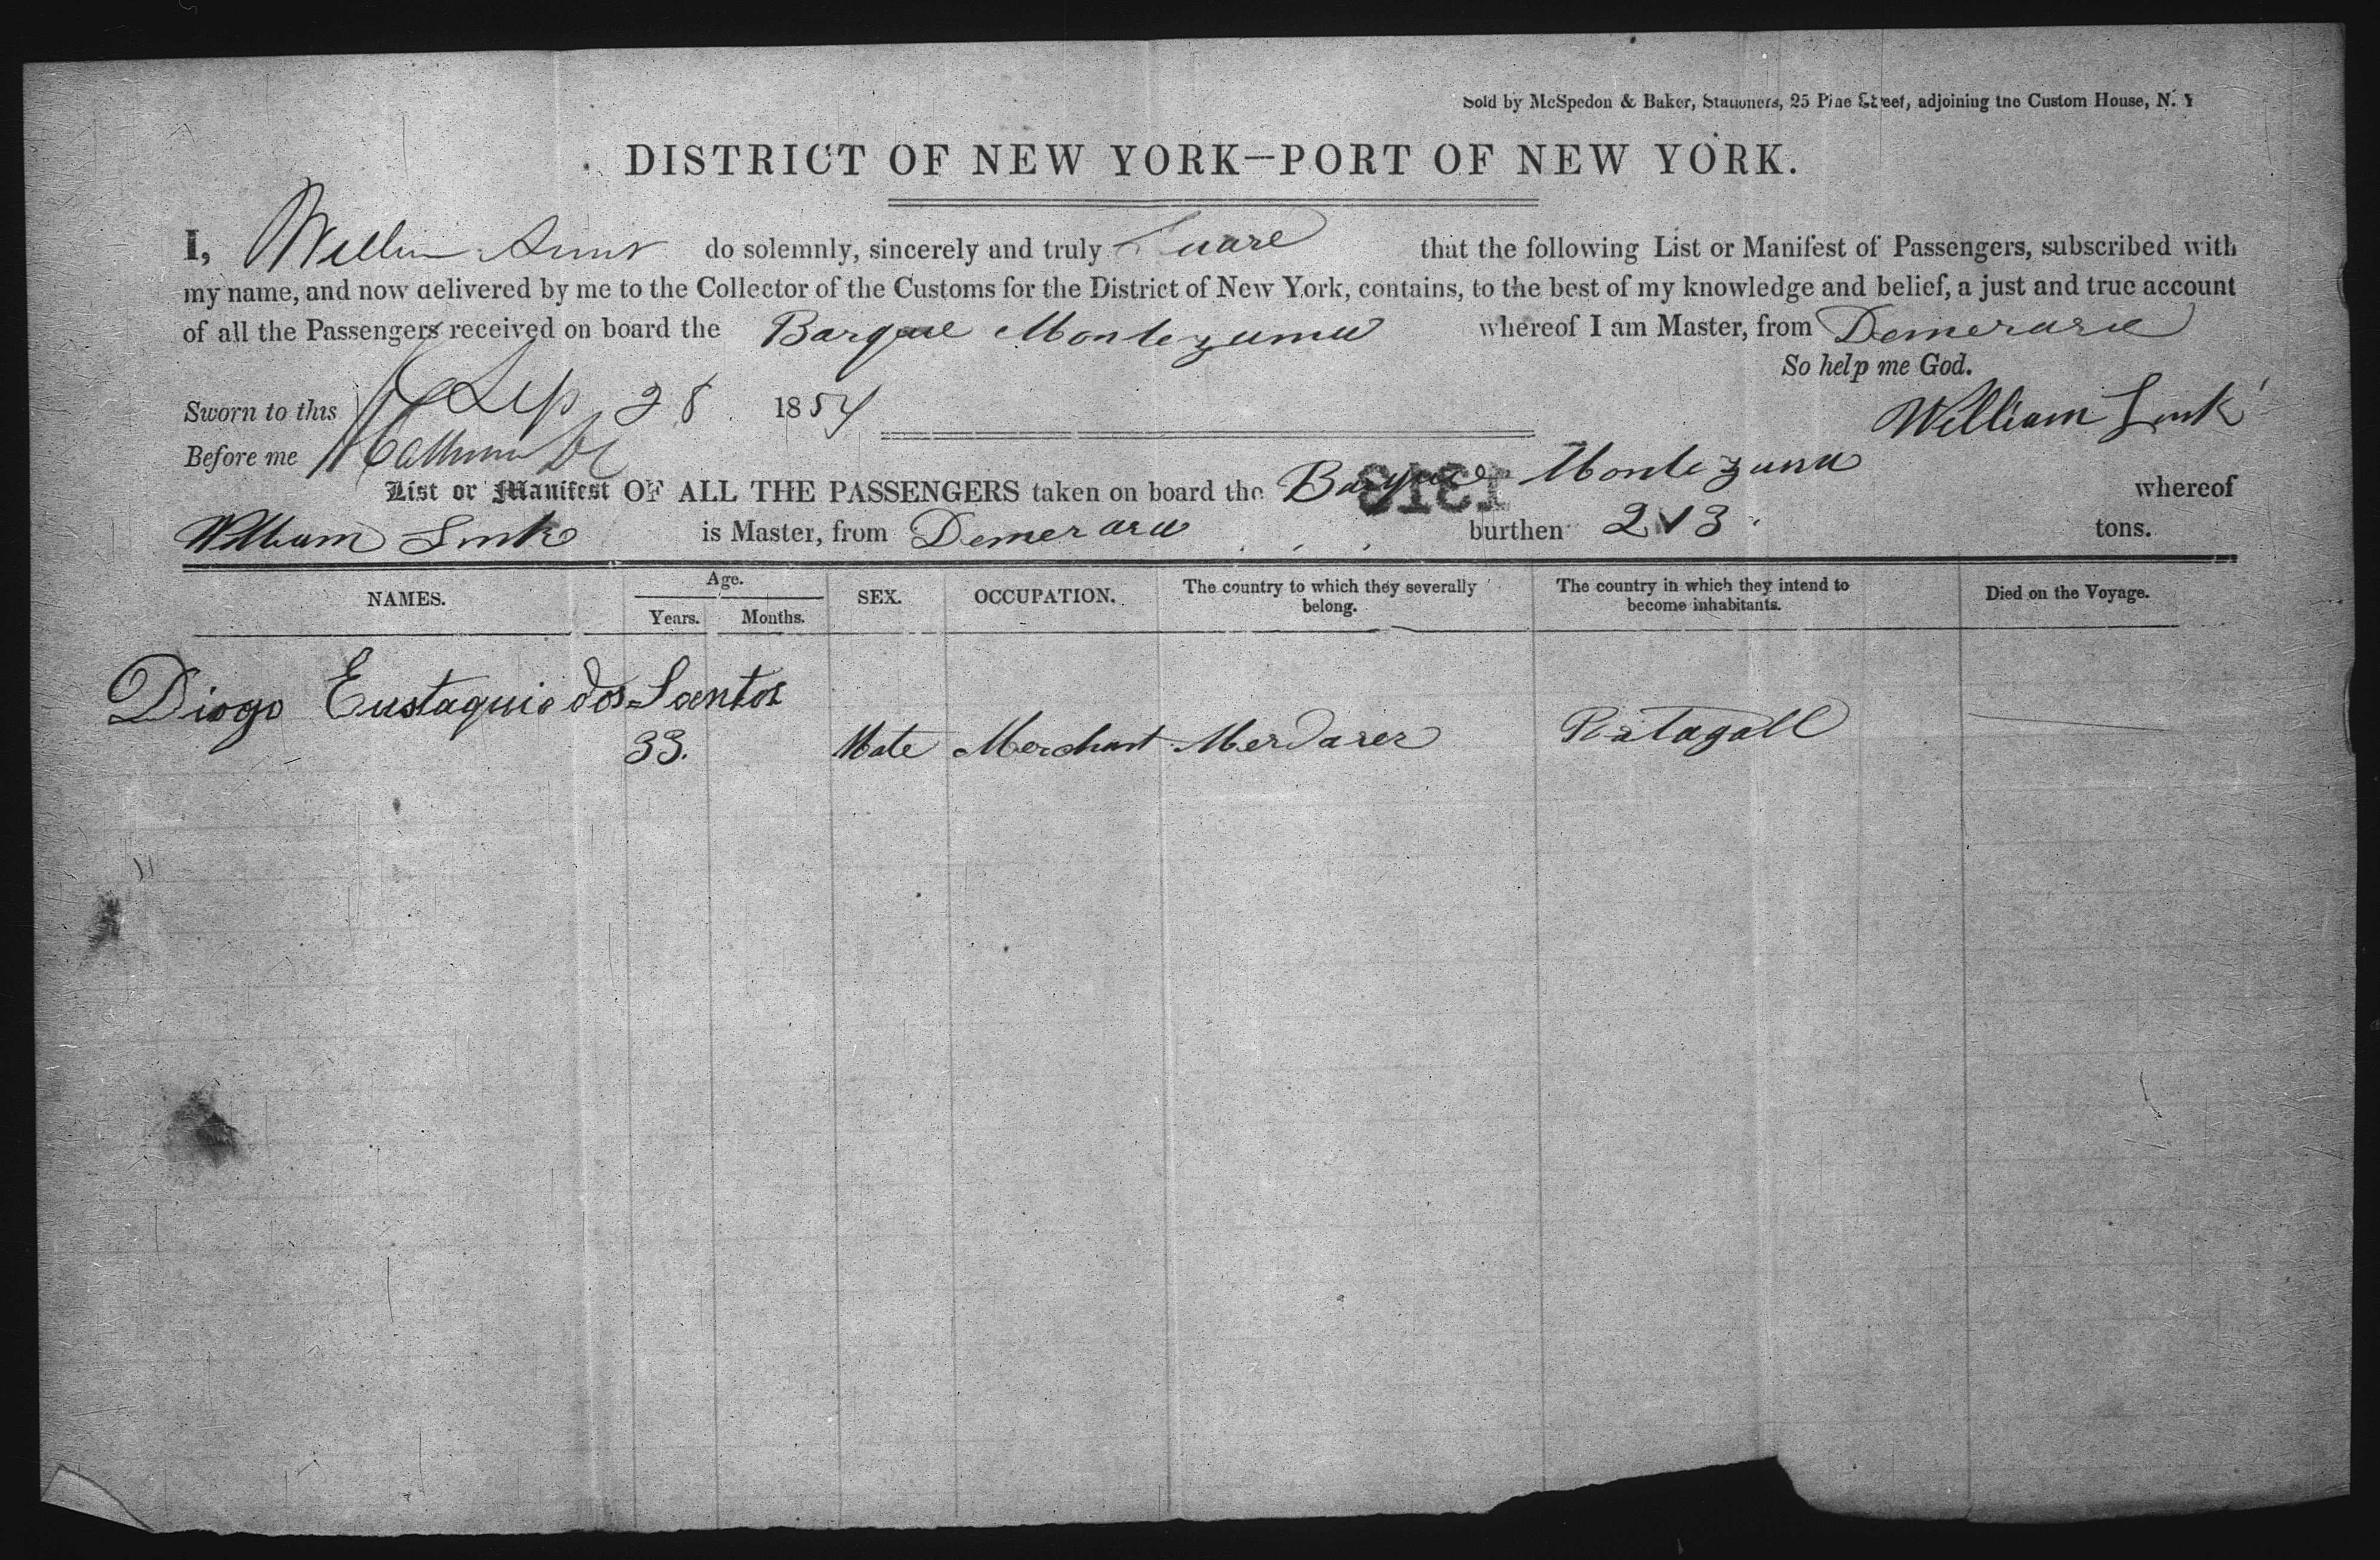 Sold by McSpedon & Baker, Stationers, 25 Pine Street, adjoining the Custom House, N. Y
DISTRICT OF NEW YORK—PORT OF NEW YORK.
I, William do solemnly, sincerely and truly that the following List or Manifest of Passengers, subscribed with
my name, and now delivered by me to the Collector of the Customs for the District of New York, contains, to the best of my knowledge and belief, a just and true account
of all the Passengers received on board the Barque Montezuma whereof I am Master, from Demerara
So help me God.
Sworn to this Sep 28 1854
William
Before me
List or Manifest OF ALL THE PASSENGERS taken on board the Barque Montezuma whereof
William is Master, from Demerara burthen tons.
1313
NAMES. Age. Years. Months. SEX. OCCUPATION. The country to which they severally belong. The country in which they intend to become inhabitants. Died on the Voyage.
Diogo Eustaquio dos Santos
33. Male Merchant